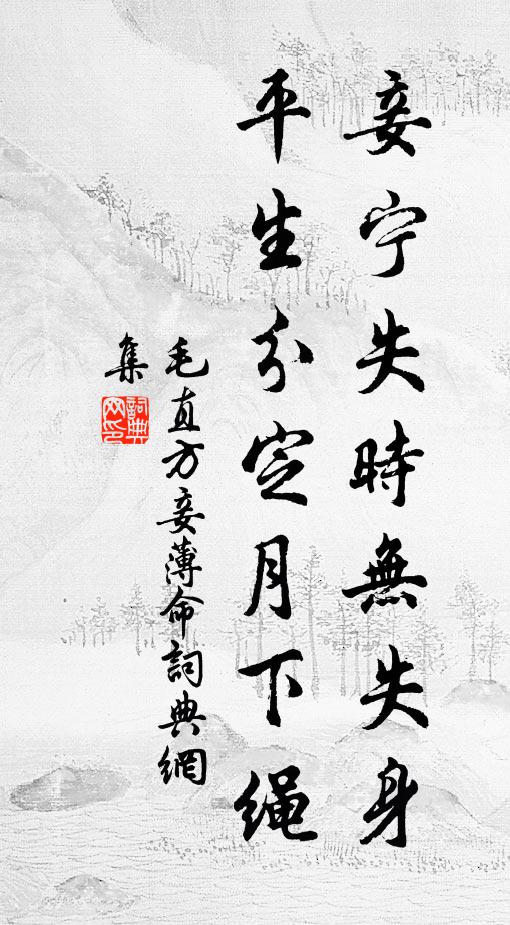 妾宁失時無失身
平生分定月下绳
毛直方妾薄命詞典網
集
詞典
网印